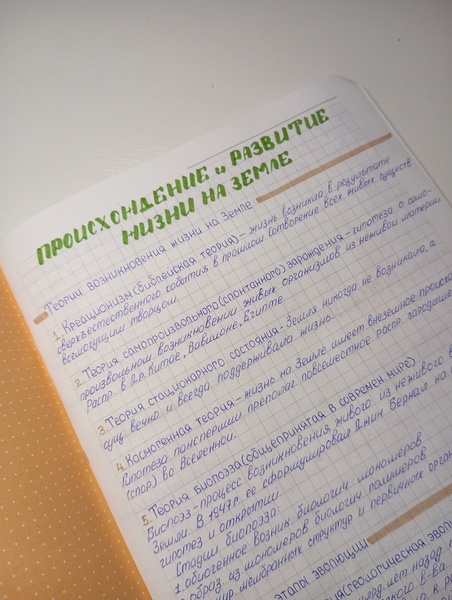 ПРОИСХОЖДЕНИЕ и РАЗВИТИЕ
ЖИЗНИ НА ЗЕМЛЕ
Теории возникновения жизни на Земле
1. Креационизм (библейская теория) - жизнь возникла в результате
сверхъестественного события в прошлом (сотворение всех живых существ
всемогущим творцом.
2. Теория самопроизвольного (спонтанного) зарождения - гипотеза о само-
произвольном возникновении живых организмов из неживой материи
Распр. в Др. Китае, Вавилоне, Египте.
3. Теория стационарного состояния - Земля никогда не возникала, а
сущ. вечно и всегда поддерживала жизнь.
4. Космогенная теория - жизнь на Земле имеет внеземное происхо
Гипотеза панспермии преполаг. повсеместное распр. зародыше
(спор) во Вселенной.
5. Теория биопоэза (общепринятая в современ. мире)
Биопоэз - процесс возникновения живого из неживого в
Земли. В 1947 г. ее сформулировал Джон Бернал на
гипотез и открытий.
Стадии биопоэза:
1. абиогенное возник. биологич. мономеров
образ. из мономеров биологич. полимеров
мембранных структур и первичных орган
этапы эволюции
(геологическая эволю
млрд лет назад
в-ва